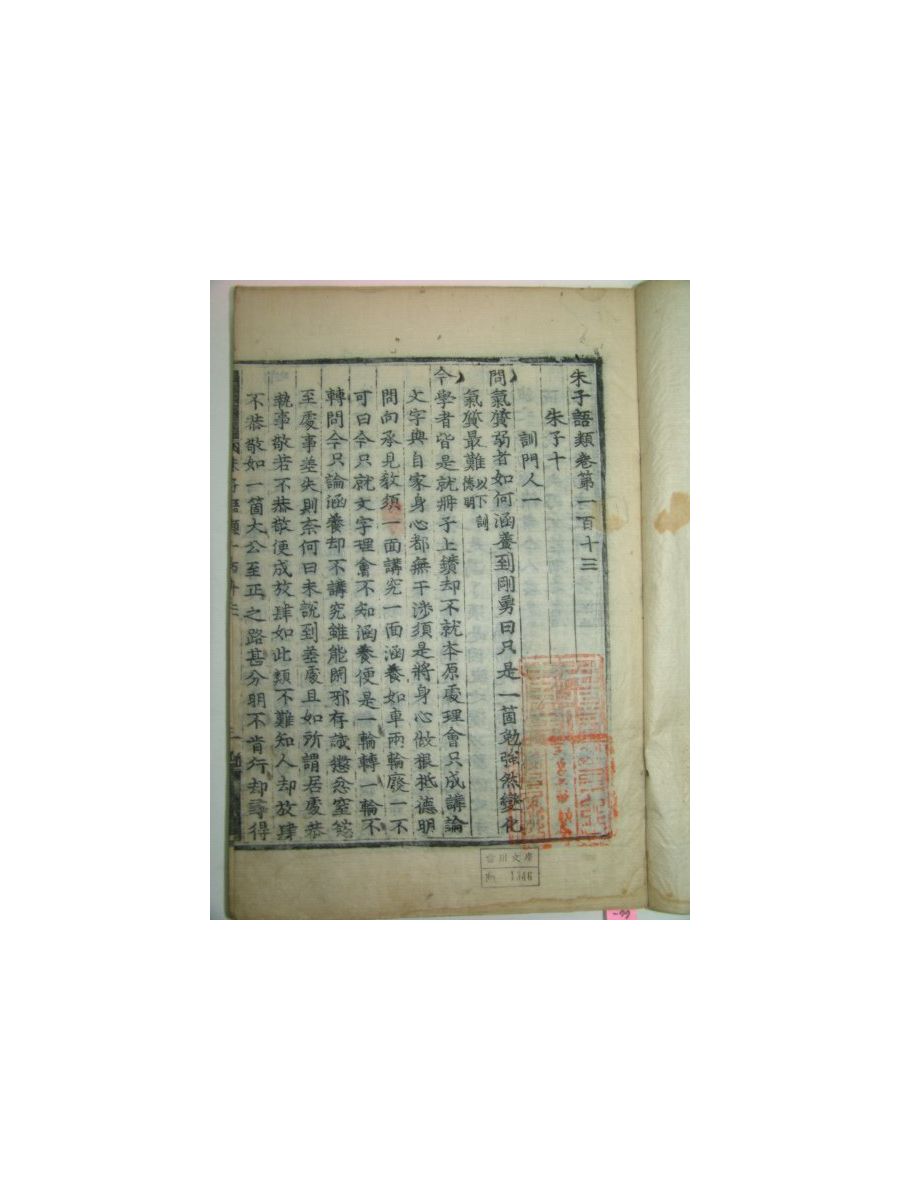 朱子語類卷第一百十三
朱子十
訓門人一
問氣質弱者如何涵養到剛勇曰只是一箇勉強然變化
氣質最難以下訓德明
今學者皆是就冊子上鑽却不就本原處理會只成講論
文字與自家身心都無干涉須是將身心做根柢德明
問向承見教須一面講究一面涵養如車兩輪廢一不
可曰今只就文字理會不知涵養便是一輪轉一輪不
轉問今只論涵養却不講究雖能閑邪存誠懲忿窒慾
至處事差失則奈何曰未說到差處且如所謂居處恭
執事敬若不恭敬便成放肆如此類不難知人却放肆
不恭敬如一箇大公至正之路甚分明不肯行却尋得
川文庫
No. 1346